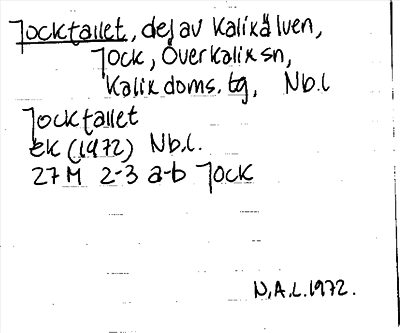 Jocktallet, del av Kalixälven,
Jock, Överkalix sn,
Kalix doms. tg, Nb.l
Jocktallet
ek (1972) Nb.l.
27 M 2-3 a-b Jock
N.A.L. 1972.